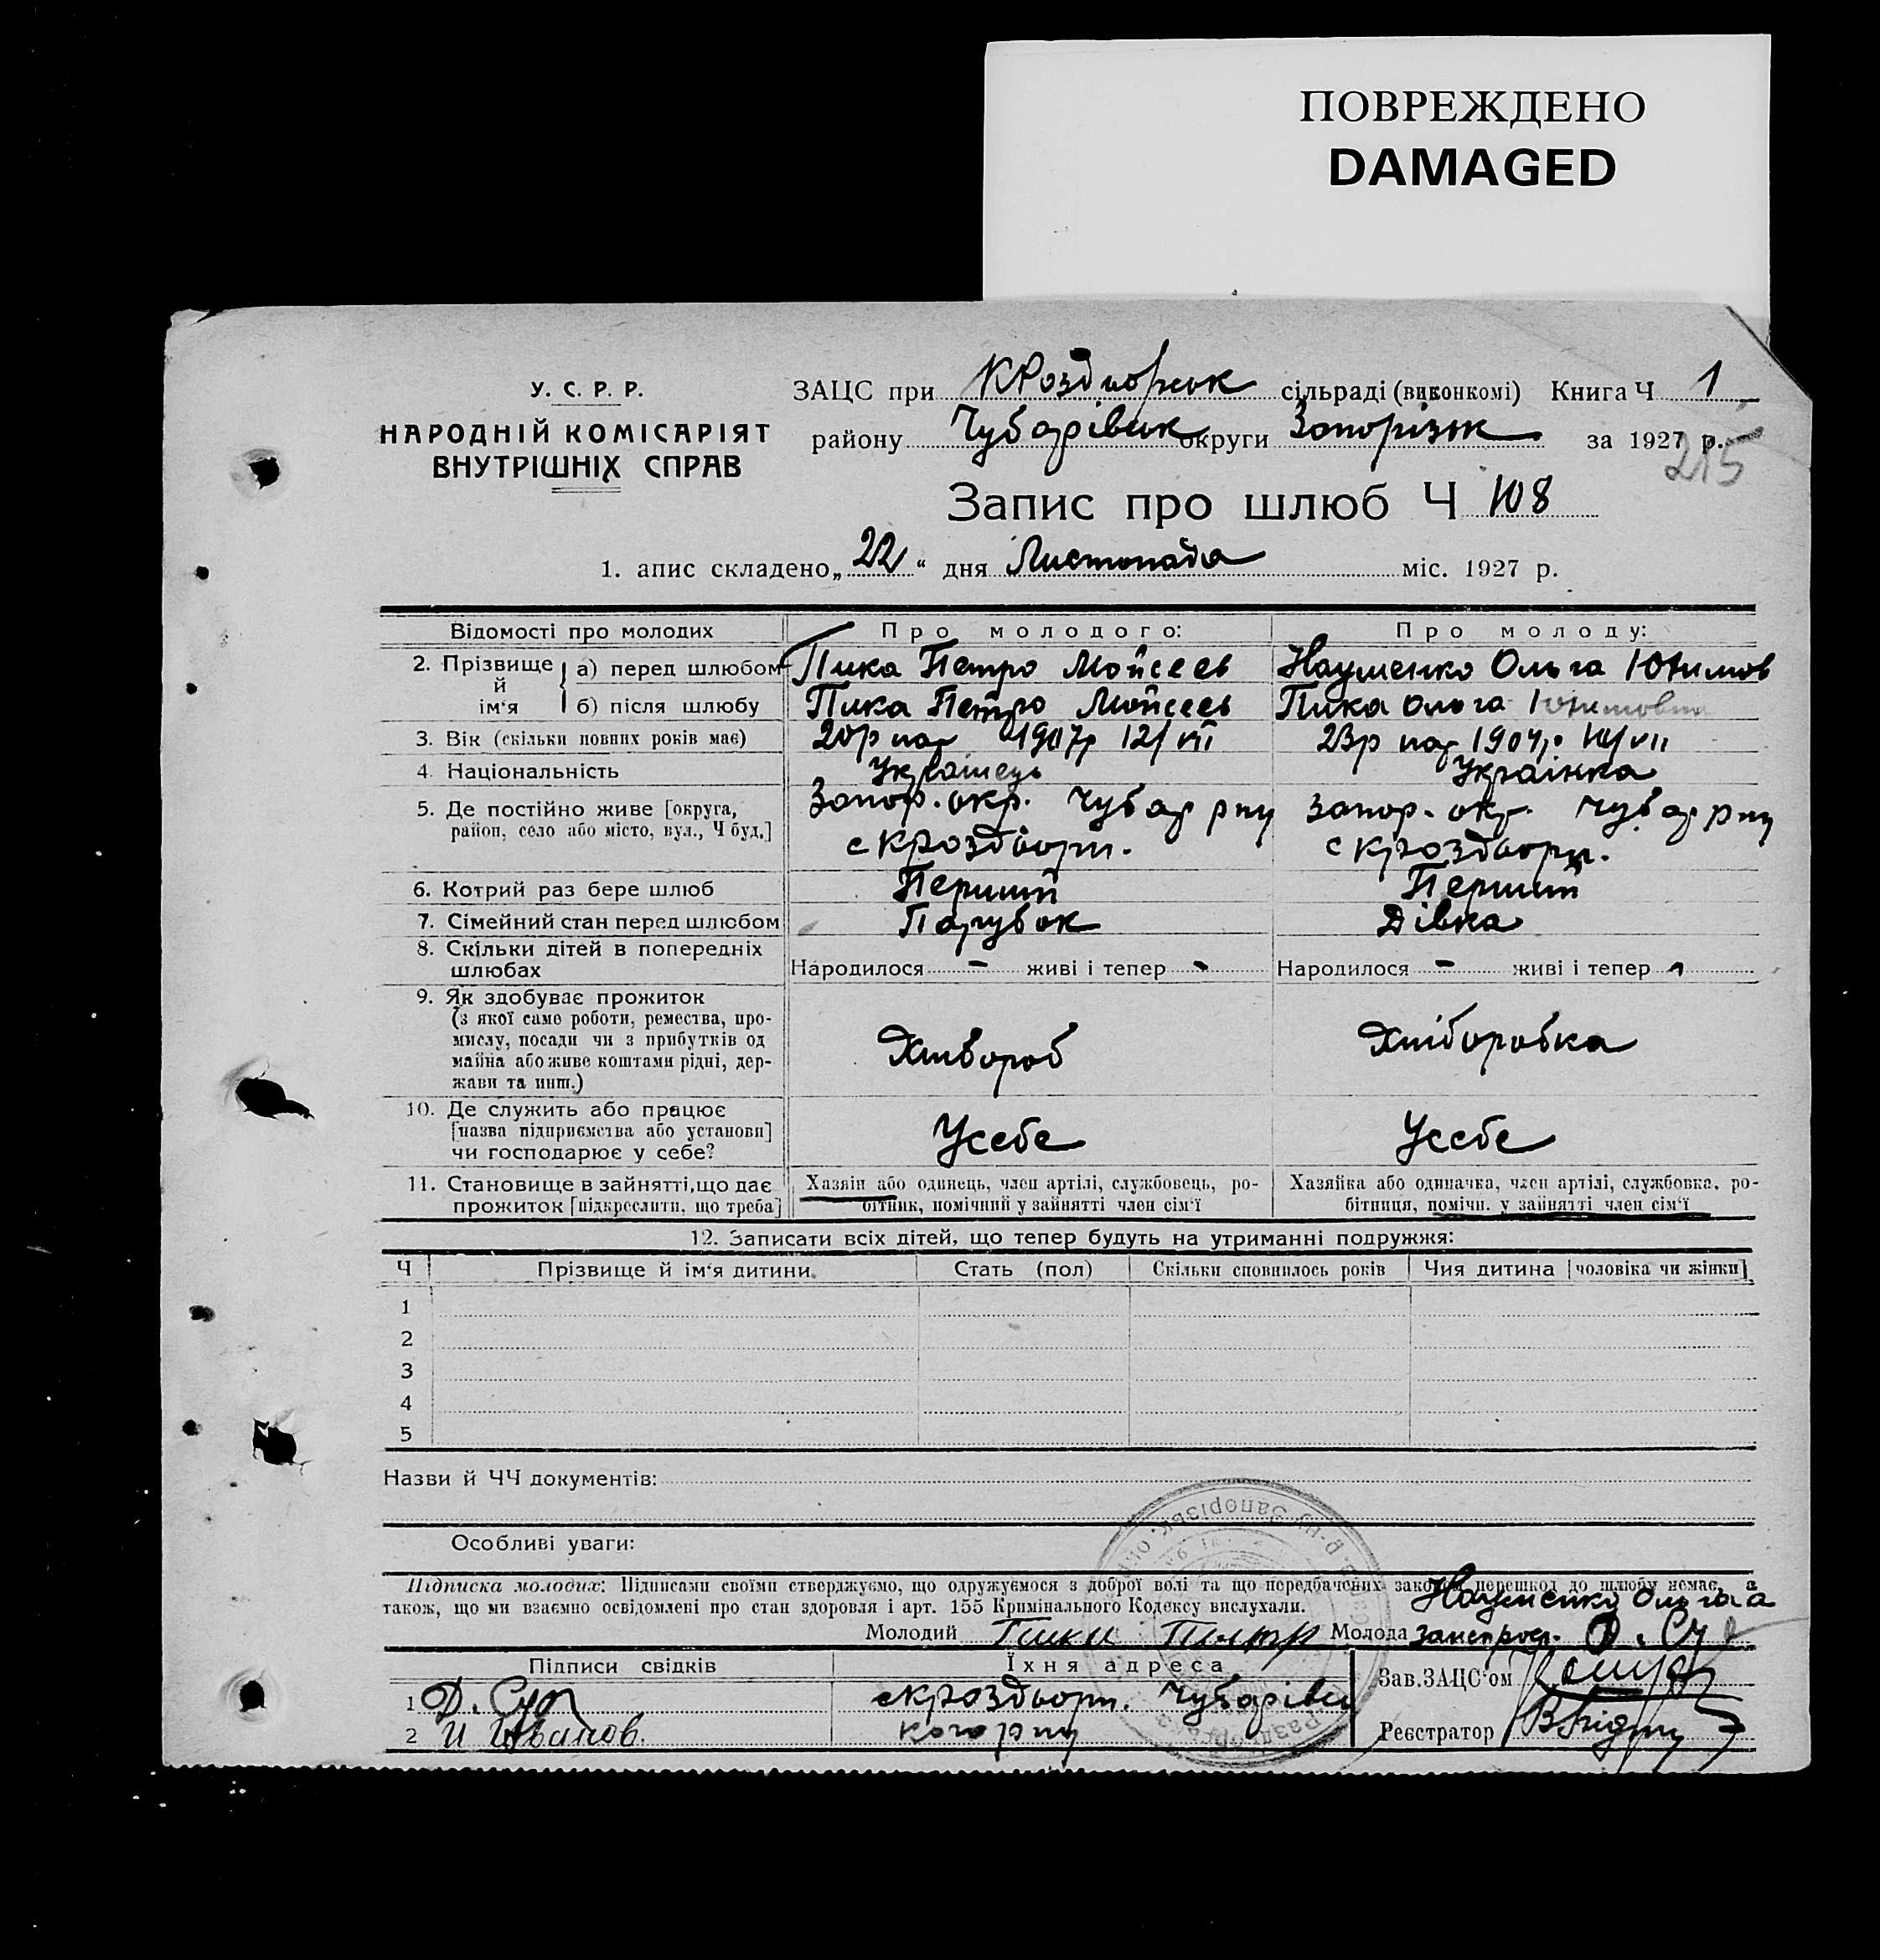 ПОВРЕЖДЕНО
DAMAGED
У. С. Р. Р.
НАРОДНІЙ КОМІСАРІЯТ
ВНУТРІШНІХ СПРАВ
ЗАЦС при КРоздорськ сільраді (виконкомі) Книга Ч 1
району Чубарівськ округи Запорізьк за 1927 р.
215
Запис про шлюб Ч 108
1. апис складено „22“ дня Листопада міс. 1927 р.
Відомості про молодих Про молодого: Про молоду:
2. Прізвище й ім‘я а) перед шлюбом Пика Петро Мойсеев Науменко Ольга Юхимов
б) після шлюбу Пика Петро Мойсеев Пика Ольга Юхимовна
3. Вік (скільки повних років має) 20р нар 1907р 12/VII 23р нар 1904р 10/VII
4. Національність Українець Українка
5. Де постійно живе [округа, Запор. окр. Чубар рну Запор. окр. Чубар рну
район, село або місто, вул., Ч буд.] с КРоздори. с КРоздори.
6. Котрий раз бере шлюб Перший Перший
7. Сімейний стан перед шлюбом Парубок Дівка
8. Скільки дітей в попередніх
шлюбах Народилося - живі і тепер - Народилося - живі і тепер -
9. Як здобуває прожиток
(з якої саме роботи, ремества, про-
мислу, посади чи з прибутків од Хлібороб Хліборобка
майна або живе коштами рідні, дер-
жави та инш.)
10. Де служить або працює
[назва підприємства або установи] Усебе Усебе
чи господарює у себе?
11. Становище в зайнятті, що дає Хазяїн або одинець, член артілі, службовець, ро- Хазяйка або одиначка, член артілі, службовка, ро-
прожиток [підкреслити, що треба] бітник, помічний у зайнятті член сім‘ї бітниця, помічн. у зайнятті член сім‘ї
12. Записати всіх дітей, що тепер будуть на утриманні подружжя:
Ч Прізвище й ім‘я дитини. Стать (пол) Скільки сповнилось років Чия дитина [чоловіка чи жінки]
1
2
3
4
5
Назви й ЧЧ документів:
Особливі уваги:
Підписка молодих: Підписами своїми стверджуємо, що одружуємося з доброї волі та що передбачених законом перешкод до шлюбу немає, а
також, що ми взаємно освідомлені про стан здоровля і арт. 155 Кримінального Кодексу вислухали. Науменко Ольга
Молодий Пика Петр Молода
Підписи свідків Їхня адреса Зав. ЗАЦС‘ом
1 с КРоздори. Чубарівсь
2 И Иванов. кого рну Реєстратор